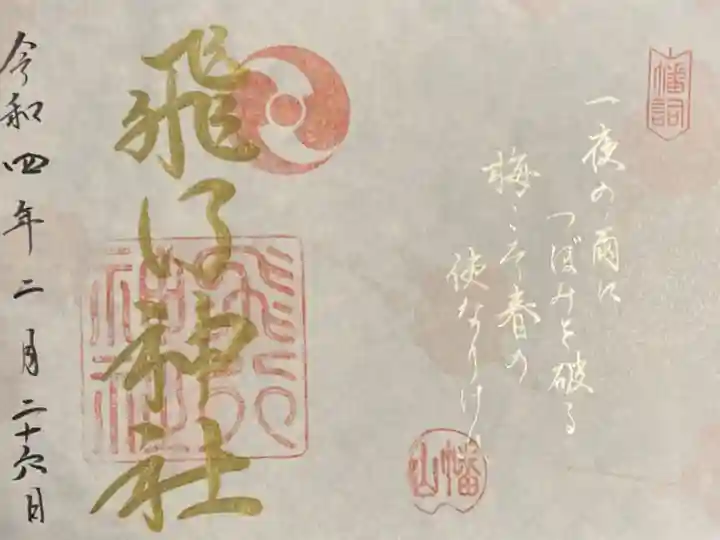 幡詞
一夜の雨に
つぼみを破る
梅こそ春の
使なりけり
幡山
飛行神社
飛行
神社
令和四年二月二十六日